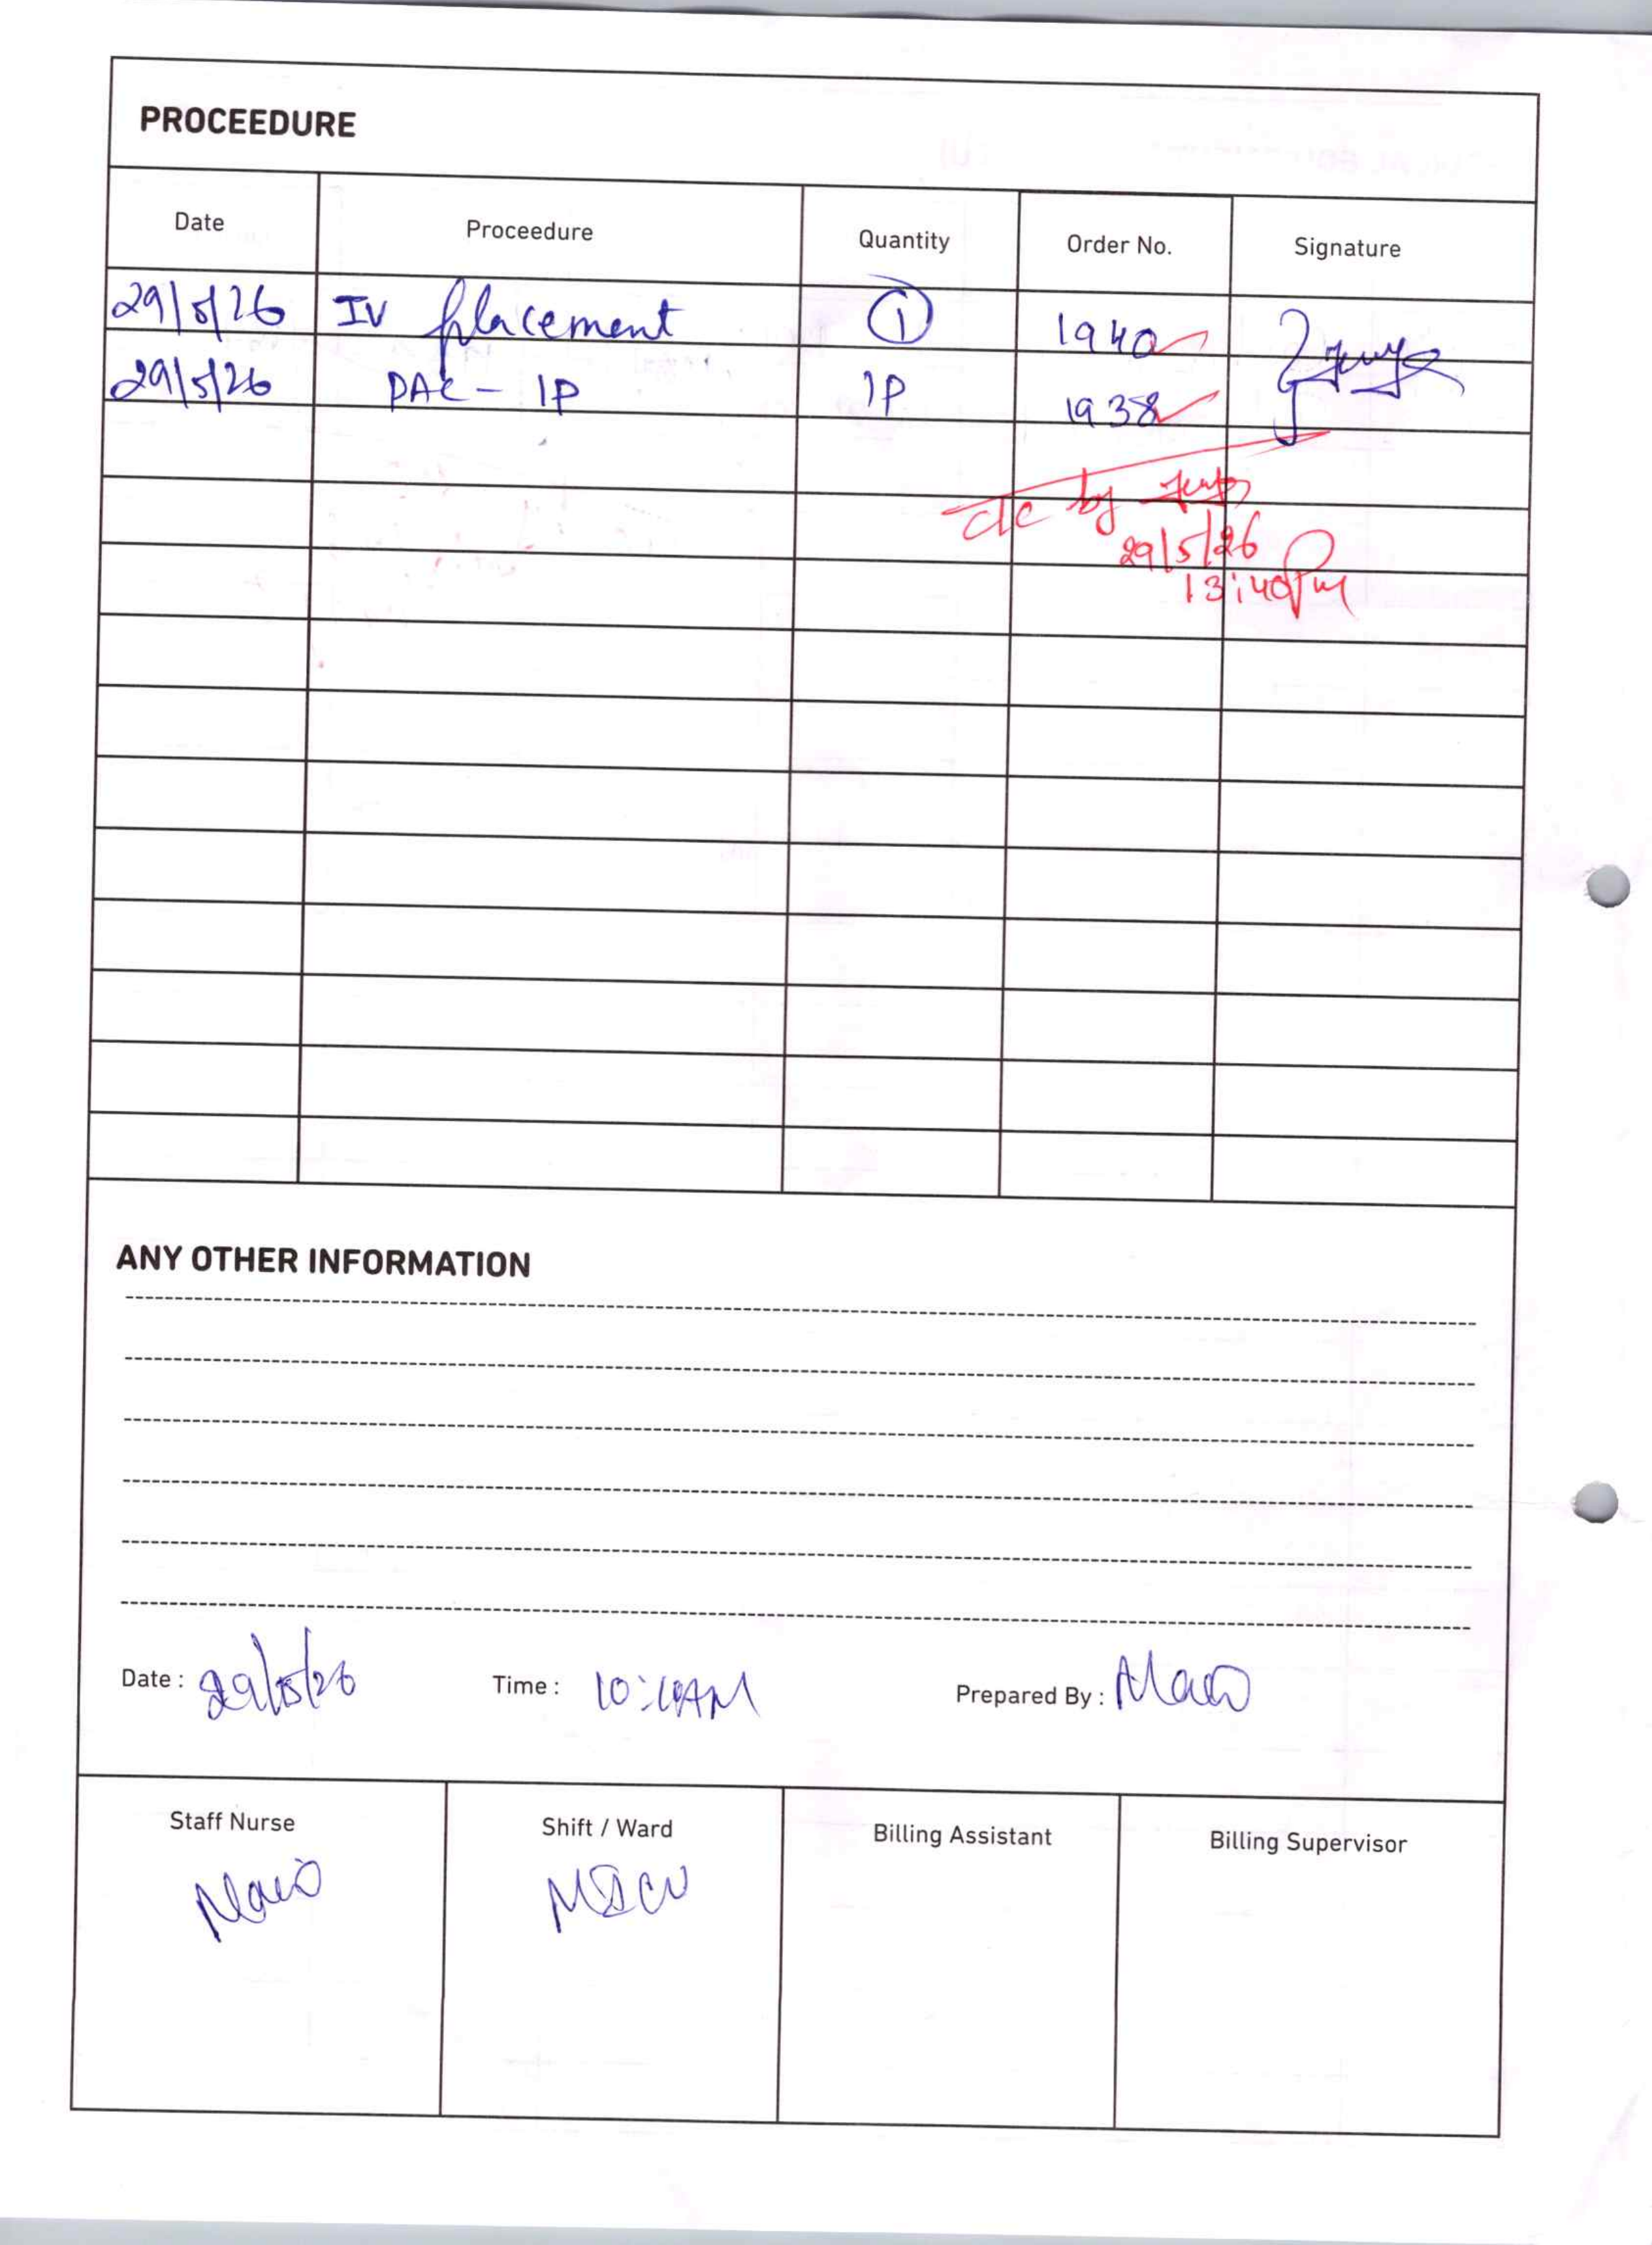 PROCEEDURE
Date Proceedure Quantity Order No. Signature
29/5/26 IV placement 1 1940
29/5/26 PAC - IP IP 1938
c/c by
29/5/26
13:40 PM
ANY OTHER INFORMATION
Date : 29/5/26 Time : 10:10AM Prepared By :
Staff Nurse Shift / Ward Billing Assistant Billing Supervisor
MICU